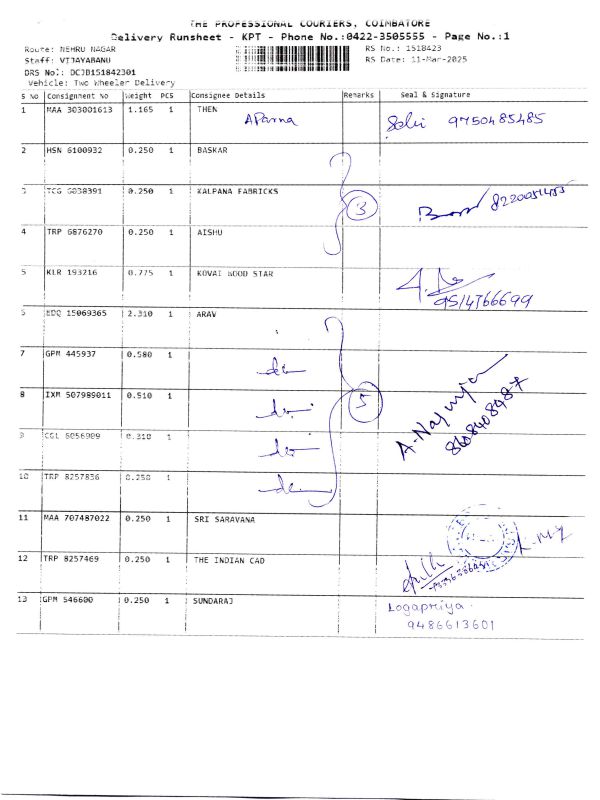 THE PROFESSIONAL COURIERS, COIMBATORE
Delivery Runsheet - KPT - Phone No.:0422-3505555 - Page No.:1
Route: NEHRU NAGAR
RS No.: 1518423
Staff: VIJAYABANU
RS Date: 11-Mar-2025
DRS No: DCJB151842301
Vehicle: Two Wheeler Delivery
S No Consignment No Weight PCS Consignee Details Remarks Seal & Signature
1 MAA 303001613 1.165 1 THEN
Aparna 9750485485
2 HSN 6100932 0.250 1 BASKAR
3 TCG 6038391 0.250 1 KALPANA FABRICKS 3
4 TRP 6876270 0.250 1 AISHU
5 KLR 193216 0.775 1 KOVAI GOOD STAR
9514766699
6 EDQ 15069365 2.310 1 ARAV
7 GPM 445937 0.580 1
8 IXM 507989011 0.510 1 5
9 CGL 6056909 0.310 1
10 TRP 8257836 0.250 1
11 MAA 707487022 0.250 1 SRI SARAVANA
12 TRP 8257469 0.250 1 THE INDIAN CAD
13 GPM 546600 0.250 1 SUNDARAJ
Logapriya
9486613601